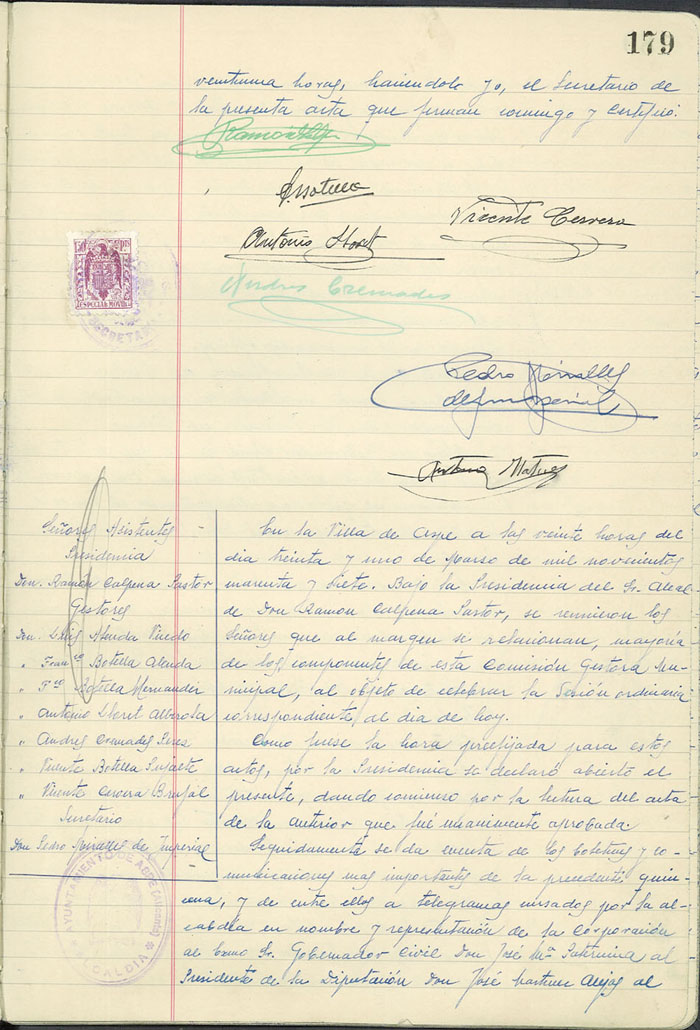 179
veintiuna horas, haciendolo yo, el Secretario de
la presente acta que firman conmigo y certifico.
Vicente Cervera
Antonio Lloret
Andres Cremades
Pedro Miralles
50 Cts
ESPECIAL MOVIL
SECRETARIA
Señores Asistentes
Presidencia
Don. Ramón Calpena Pastor
Gestores
Don. Luis Alenda
" Franco Botella Alenda
" Fco Botella Hernandez
" Antonio Lloret Alberola
" Andres Cremades Perez
" Vicente Botella
" Vicente Cervera Brufal
Secretario
Don Pedro Miralles de Imperial
AYUNTAMIENTO DE ASPE (Alicante)
ALCALDIA
En la Villa de Aspe a las veinte horas del
dia treinta y uno de Marzo de mil novecientos
cuarenta y siete. Bajo la Presidencia del Sr. Alcal-
de Don Ramon Calpena Pastor, se reunieron los
Señores que al margen se relacionan, mayoria
de los componentes de esta Comisión Gestora Mu-
nicipal, al objeto de celebrar la Sesión ordinaria
correspondiente al dia de hoy.
Como fuese la hora prefijada para estos
actos, por la Presidencia se declaró abierto el
presente, dando comienzo por la lectura del acta
de la anterior que fué unanimente aprobada.
Seguidamente se da cuenta de los Boletines y co-
municaciones mas importantes de la precedente quin-
cena, y de entre ellos a telegramas cursados por la al-
cabdia en nombre y representación de la Corporación
al Excmo Sr. Gobernador Civil Don José Mª Paternina al
Presidente de la Diputación Don José Martinez Alejos al